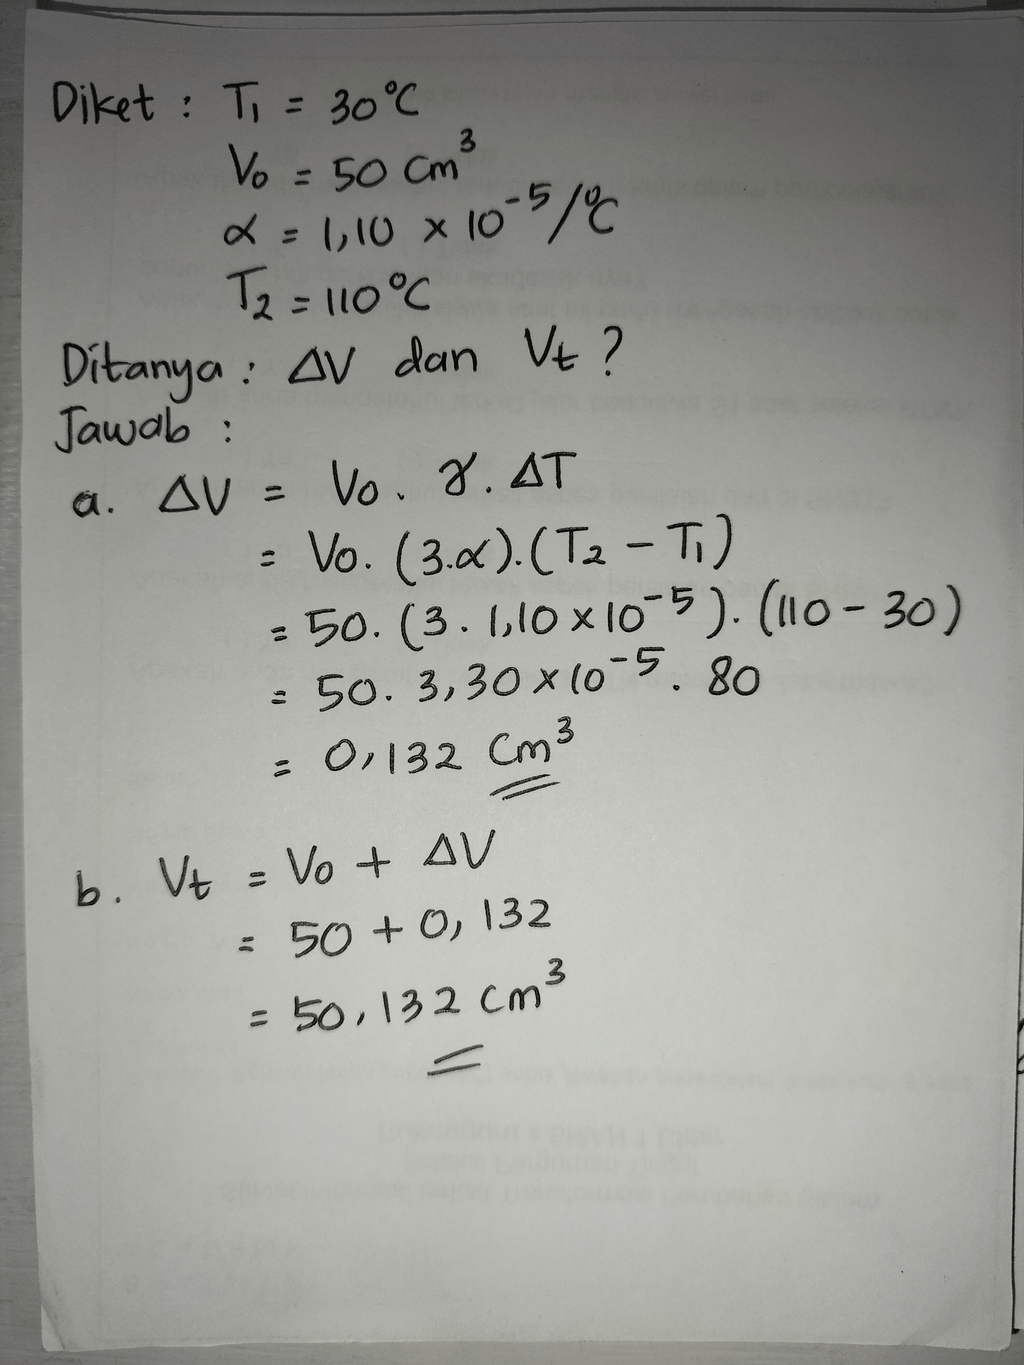 Diket : T₁ = 30°C
V₀ = 50 cm³
α = 1,10 × 10⁻⁵/°C
T₂ = 110°C
Ditanya : ΔV dan Vt ?
Jawab :
a. ΔV = V₀ . γ . ΔT
= V₀. (3.α).(T₂ - T₁)
= 50. (3 . 1,10 × 10⁻⁵). (110 - 30)
= 50. 3,30 × 10⁻⁵. 80
= 0,132 cm³
b. Vt = V₀ + ΔV
= 50 + 0,132
= 50,132 cm³